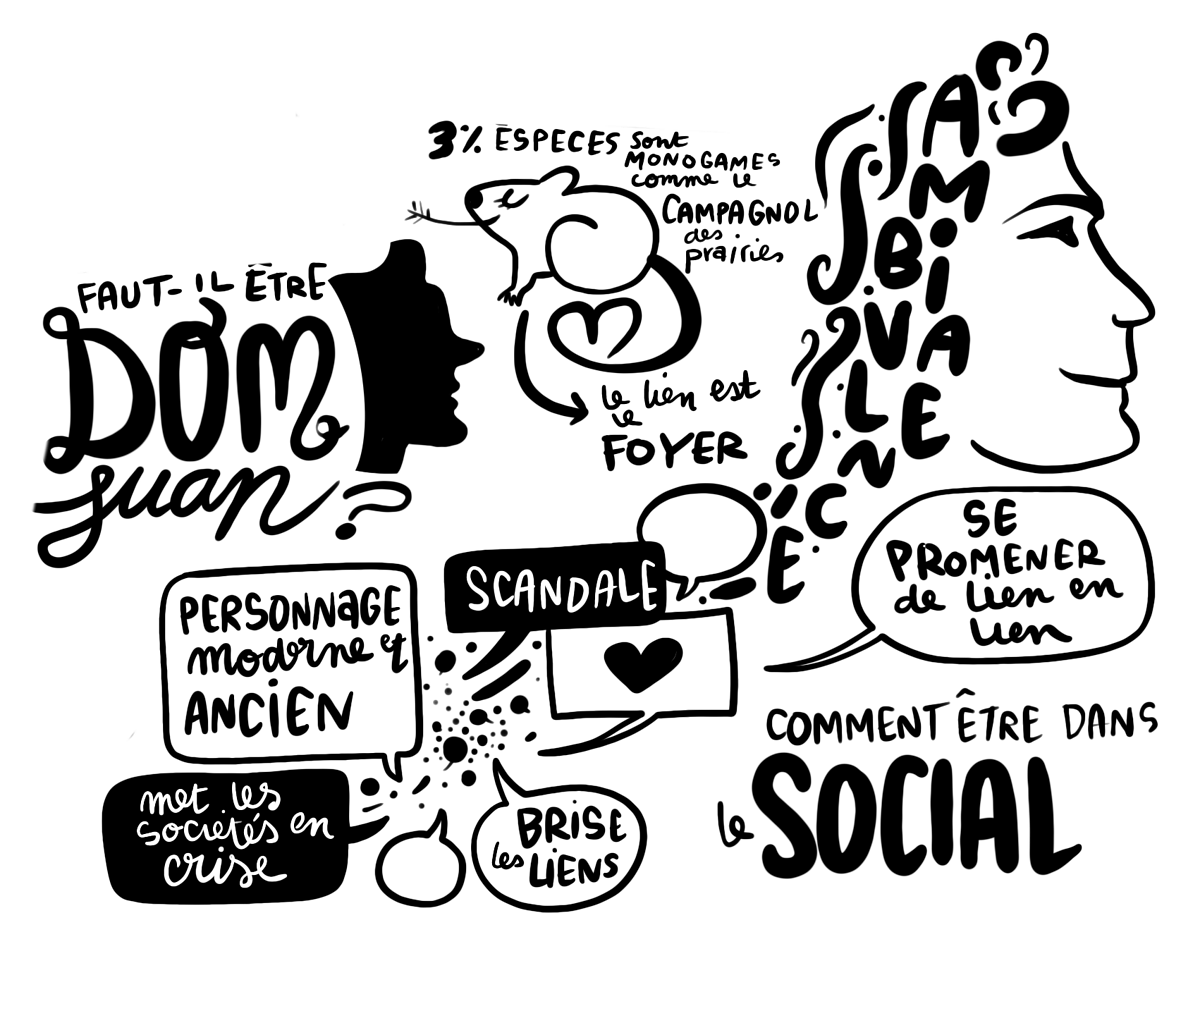 3% ESPECES sont
MONOGAMES
comme le
CAMPAGNOL
des
prairies
le lien est
le
FOYER
FAUT-IL ÊTRE
DOM
juan ?
AMBIVALENCÉ
SE
PROMENER
de lien en
lien
SCANDALE
PERSONNAGE
moderne et
ANCIEN
met les
societés en
crise
BRISE
les LIENS
COMMENT ÊTRE DANS
le SOCIAL